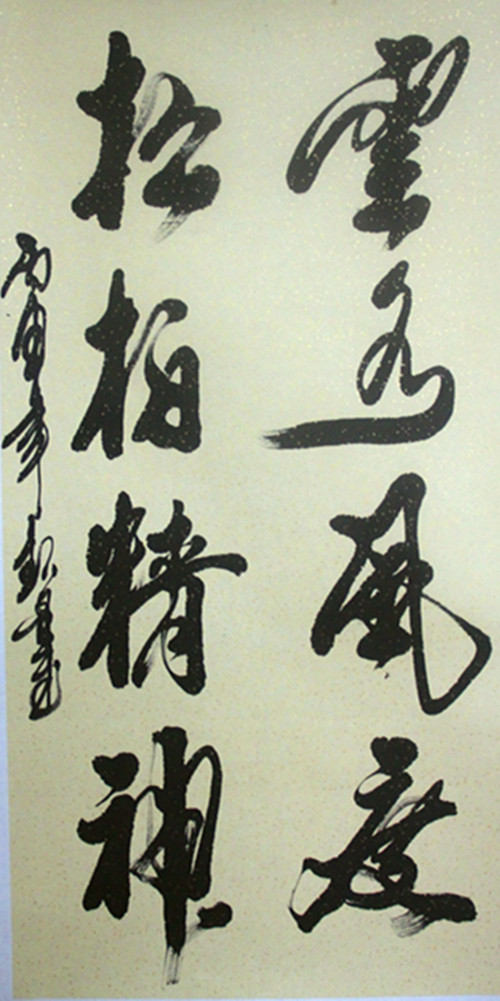 雲水風度
松柏精神
丙申年